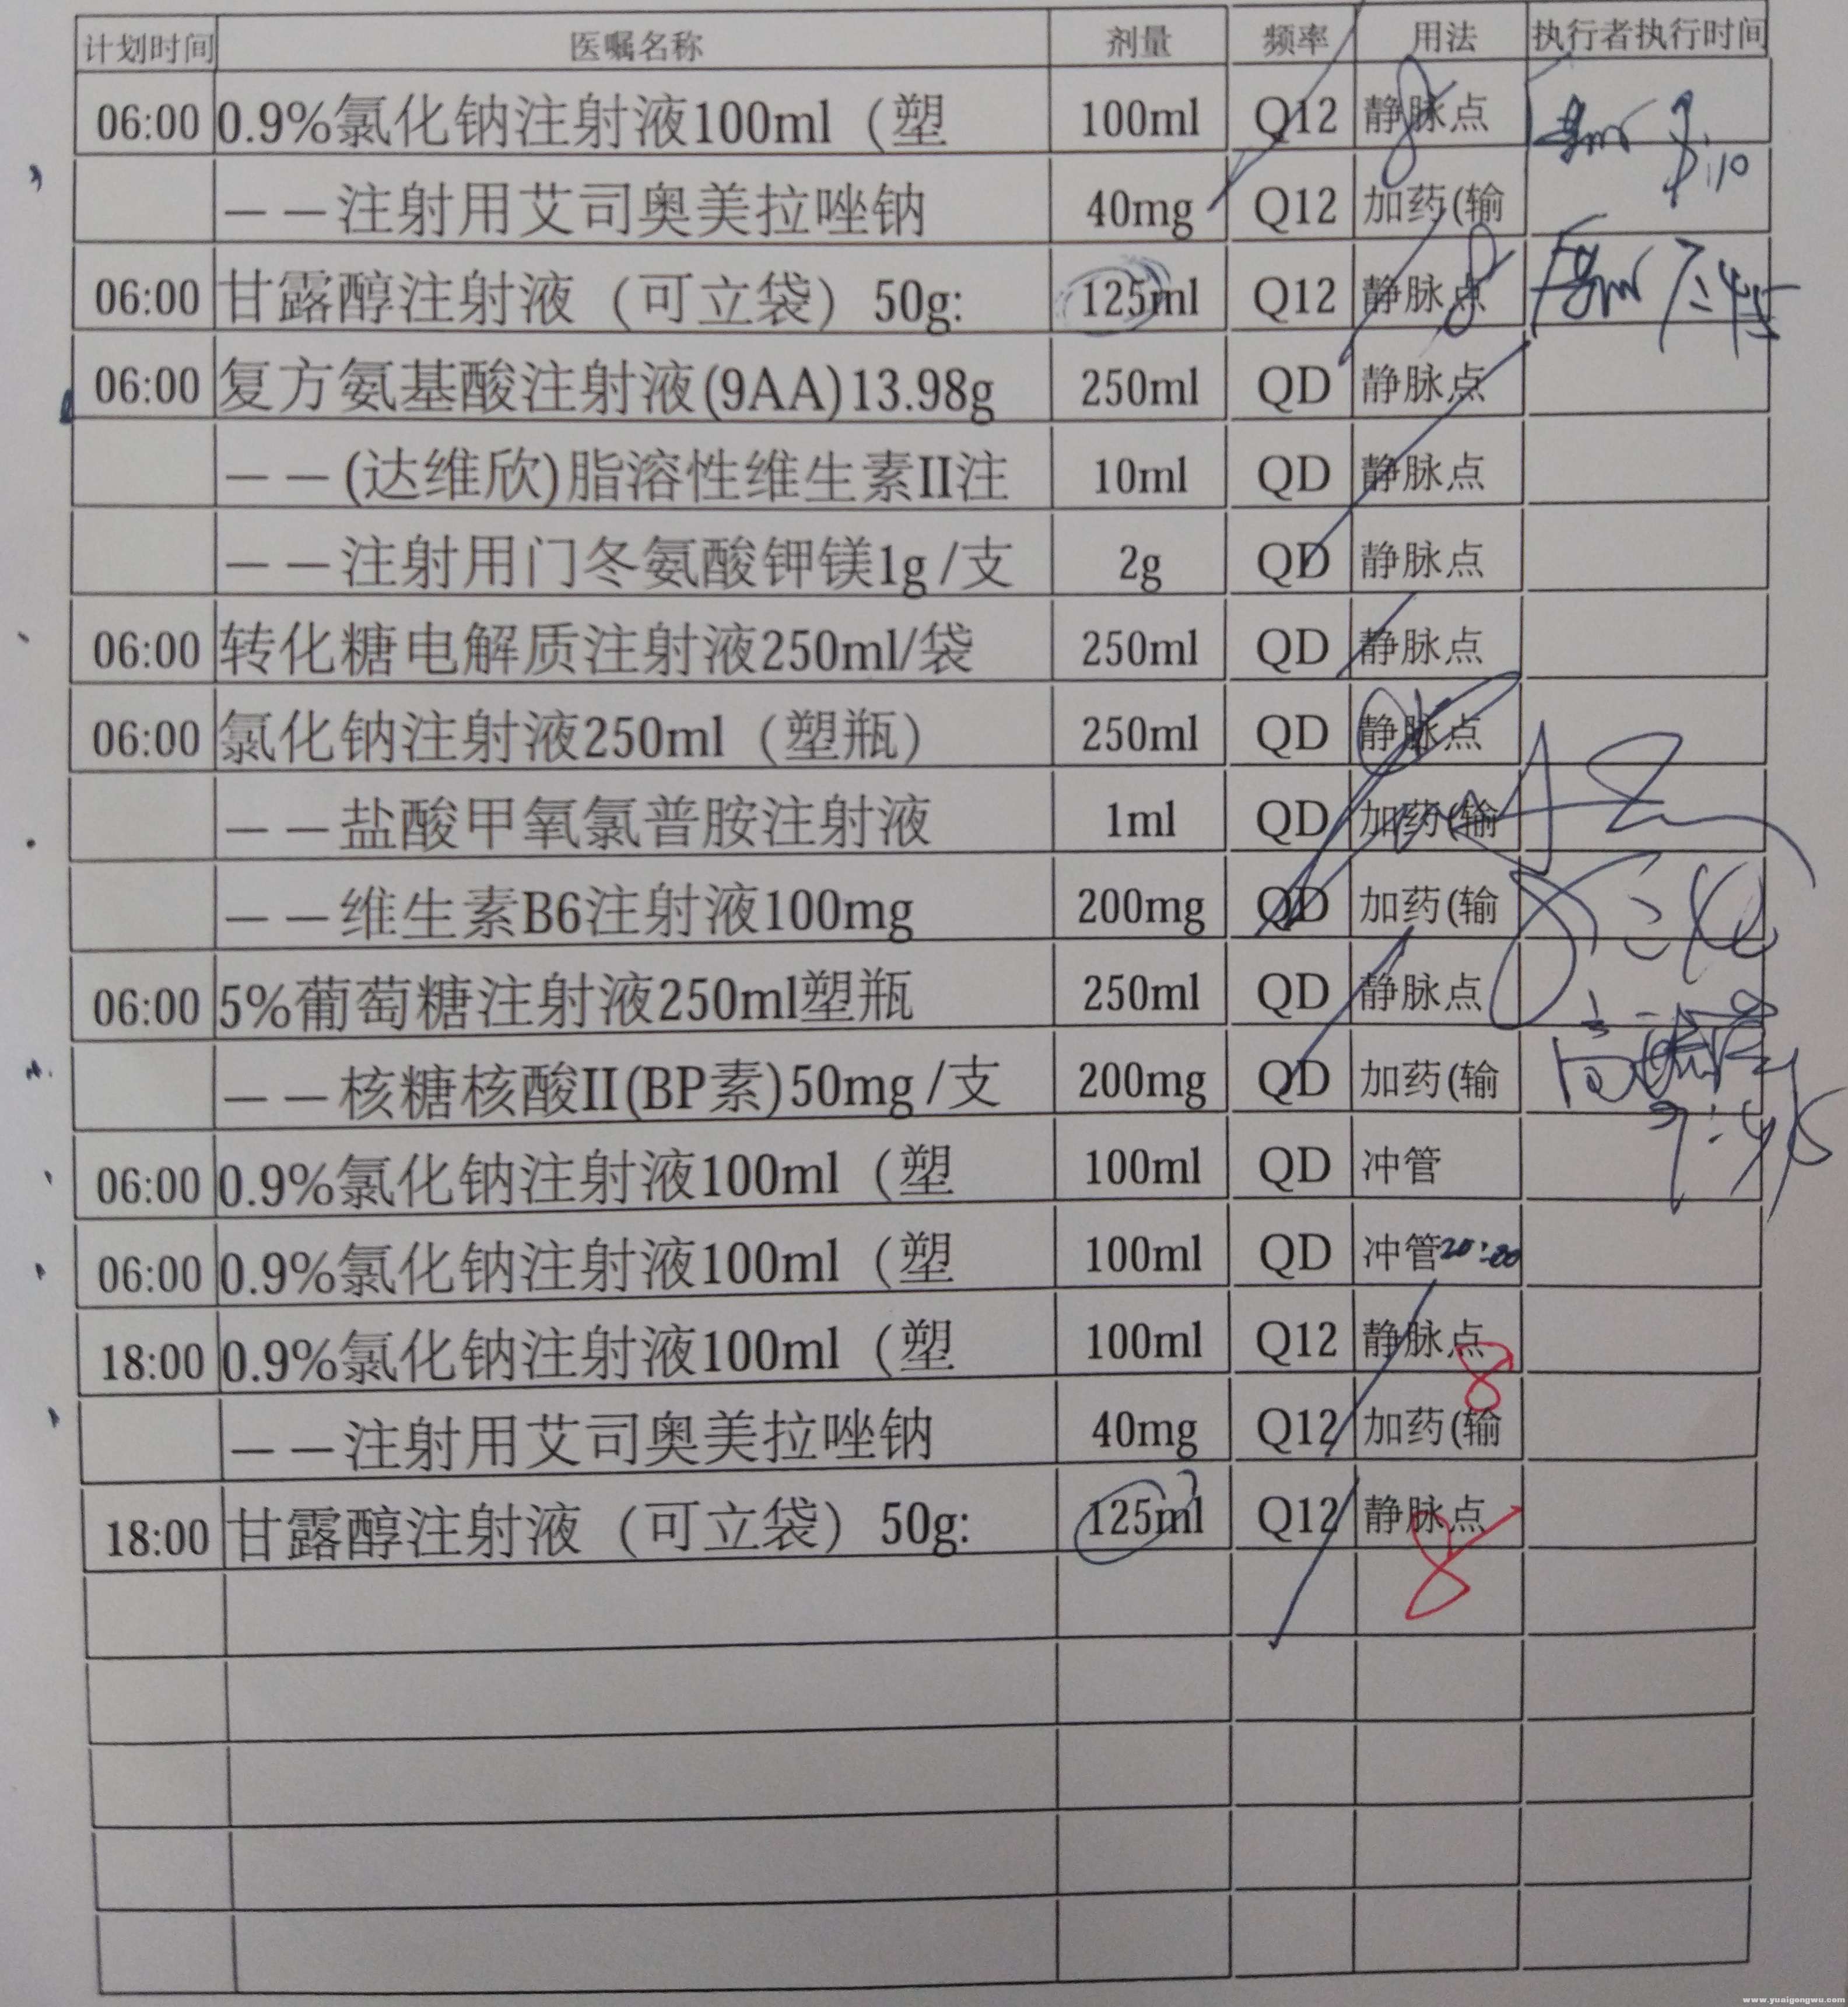 计划时间 医嘱名称 剂量 频率 用法 执行者执行时间
06:00 0.9%氯化钠注射液100ml（塑 100ml Q12 静脉点
——注射用艾司奥美拉唑钠 40mg Q12 加药(输 8:10
06:00 甘露醇注射液（可立袋）50g: 125ml Q12 静脉点 7:45
06:00 复方氨基酸注射液(9AA)13.98g 250ml QD 静脉点
——(达维欣)脂溶性维生素II注 10ml QD 静脉点
——注射用门冬氨酸钾镁1g/支 2g QD 静脉点
06:00 转化糖电解质注射液250ml/袋 250ml QD 静脉点
06:00 氯化钠注射液250ml（塑瓶） 250ml QD 静脉点
——盐酸甲氧氯普胺注射液 1ml QD 加药(输
——维生素B6注射液100mg 200mg QD 加药(输
06:00 5%葡萄糖注射液250ml塑瓶 250ml QD 静脉点
——核糖核酸II(BP素)50mg/支 200mg QD 加药(输
9:45
06:00 0.9%氯化钠注射液100ml（塑 100ml QD 冲管
06:00 0.9%氯化钠注射液100ml（塑 100ml QD 冲管 20:00
18:00 0.9%氯化钠注射液100ml（塑 100ml Q12 静脉点 8
——注射用艾司奥美拉唑钠 40mg Q12 加药(输
18:00 甘露醇注射液（可立袋）50g: 125ml Q12 静脉点
8
www.yuaigongwu.com